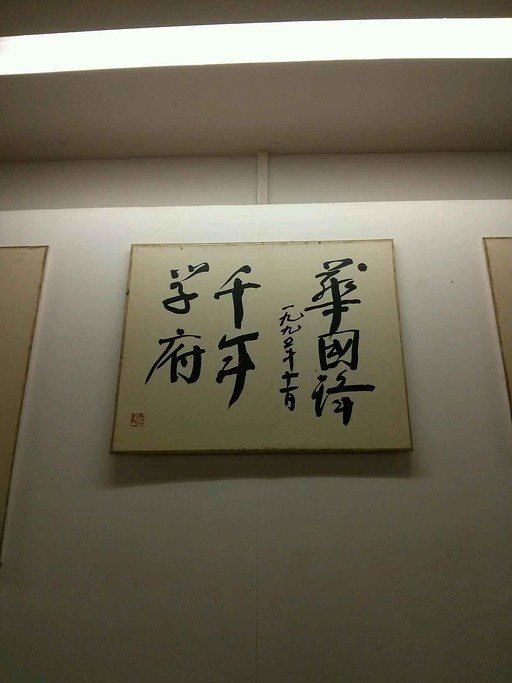 華國鋒
一九九五年十一月
千年
学府